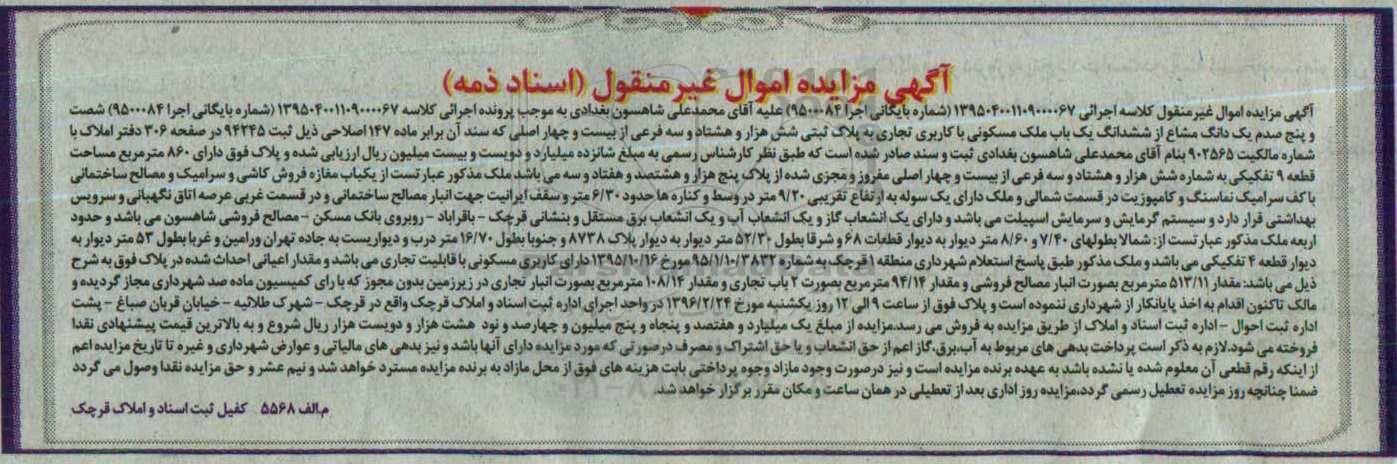 آگهی مزایده اموال غیر منقول (اسناد ذمه)
آگهی مزایده اموال غیرمنقول کلاسه اجرائی ۱۳۹۵۰۴۰۰۱۱۰۹۰۰۰۰۶۷ (شماره بایگانی اجرا ۹۵۰۰۰۸۴) علیه آقای محمدعلی شاهسون بغدادی به موجب پرونده اجرائی کلاسه ۱۳۹۵۰۴۰۰۱۱۰۹۰۰۰۰۶۷ (شماره بایگانی اجرا ۹۵۰۰۰۸۴) شصت
و پنج صدم یک دانگ مشاع از ششدانگ یک باب ملک مسکونی با کاربری تجاری به پلاک ثبتی شش هزار و هشتاد و سه فرعی از بیست و چهار اصلی که سند آن برابر ماده ۱۴۷ اصلاحی ذیل ثبت ۹۴۲۴۵ در صفحه ۳۰۶ دفتر املاک با
شماره مالکیت ۹۰۲۵۶۵ بنام آقای محمدعلی شاهسون بغدادی ثبت و سند صادر شده است که طبق نظر کارشناس رسمی به مبلغ شانزده میلیارد و دویست و بیست میلیون ریال ارزیابی شده و پلاک فوق دارای ۸۶۰ مترمربع مساحت
قطعه ۹ تفکیکی به شماره شش هزار و هشتاد و سه فرعی از بیست و چهار اصلی مفروز و مجزی شده از پلاک پنج هزار و هشتصد و هفتاد و سه می باشد ملک مذکور عبارتست از یکباب مغازه فروش کاشی و سرامیک و مصالح ساختمانی
با کف سرامیک نماسنگ و کامپوزیت در قسمت شمالی و ملک دارای یک سوله به ارتفاع تقریبی ۹/۲۰ متر در وسط و کناره ها حدود ۶/۳۰ متر و سقف ایرانیت جهت انبار مصالح ساختمانی و در قسمت غربی عرصه اتاق نگهبانی و سرویس
بهداشتی قرار دارد و سیستم گرمایش و سرمایش اسپیلت می باشد و دارای یک انشعاب گاز و یک انشعاب آب و یک انشعاب برق مستقل و بنشانی قرچک - باقرآباد - روبروی بانک مسکن - مصالح فروشی شاهسون می باشد و حدود
اربعه ملک مذکور عبارتست از: شمالا بطولهای ۷/۴۰ و ۸/۶۰ متر دیوار به دیوار قطعات ۶۸ و شرقا بطول ۵۲/۳۰ متر دیوار به دیوار پلاک ۸۷۳۸ و جنوبا بطول ۱۶/۷۰ متر درب و دیواریست به جاده تهران ورامین و غربا بطول ۵۳ متر دیوار به
دیوار قطعه ۴ تفکیکی می باشد و ملک مذکور طبق پاسخ استعلام شهرداری منطقه ۱ قرچک به شماره ۹۵/۱/۱۰/۳۸۳۲ مورخ ۱۳۹۵/۱۰/۱۶ دارای کاربری مسکونی با قابلیت تجاری می باشد و مقدار اعیانی احداث شده در پلاک فوق به شرح
ذیل می باشد: مقدار ۵۱۳/۱۱ مترمربع بصورت انبار مصالح فروشی و مقدار ۹۴/۱۴ مترمربع بصورت ۲ باب تجاری و مقدار ۱۰۸/۱۴ مترمربع بصورت انبار تجاری در زیرزمین بدون مجوز که با رای کمیسیون ماده صد شهرداری مجاز گردیده و
مالک تاکنون اقدام به اخذ پایانکار از شهرداری ننموده است و پلاک فوق از ساعت ۹ الی ۱۲ روز یکشنبه مورخ ۱۳۹۶/۲/۲۴ در واحد اجرای اداره ثبت اسناد و املاک قرچک واقع در قرچک - شهرک طلائیه - خیابان قربان صباغ - پشت
اداره ثبت احوال - اداره ثبت اسناد و املاک از طریق مزایده به فروش می رسد.مزایده از مبلغ یک میلیارد و هفتصد و پنجاه و پنج میلیون و چهارصد و نود هشت هزار و دویست هزار ریال شروع و به بالاترین قیمت پیشنهادی نقدا
فروخته می شود.لازم به ذکر است پرداخت بدهی های مربوط به آب،برق،گاز اعم از حق انشعاب و یا حق اشتراک و مصرف درصورتی که مورد مزایده دارای آنها باشد و نیز بدهی های مالیاتی و عوارض شهرداری و غیره تا تاریخ مزایده اعم
از اینکه رقم قطعی آن معلوم شده یا نشده باشد به عهده برنده مزایده است و نیز درصورت وجود مازاد وجوه پرداختی بابت هزینه های فوق از محل مازاد به برنده مزایده مسترد خواهد شد و نیم عشر و حق مزایده نقدا وصول می گردد
ضمنا چنانچه روز مزایده تعطیل رسمی گردد،مزایده روز اداری بعد از تعطیلی در همان ساعت و مکان مقرر برگزار خواهد شد.
م.الف ۵۵۶۸ کفیل ثبت اسناد و املاک قرچک